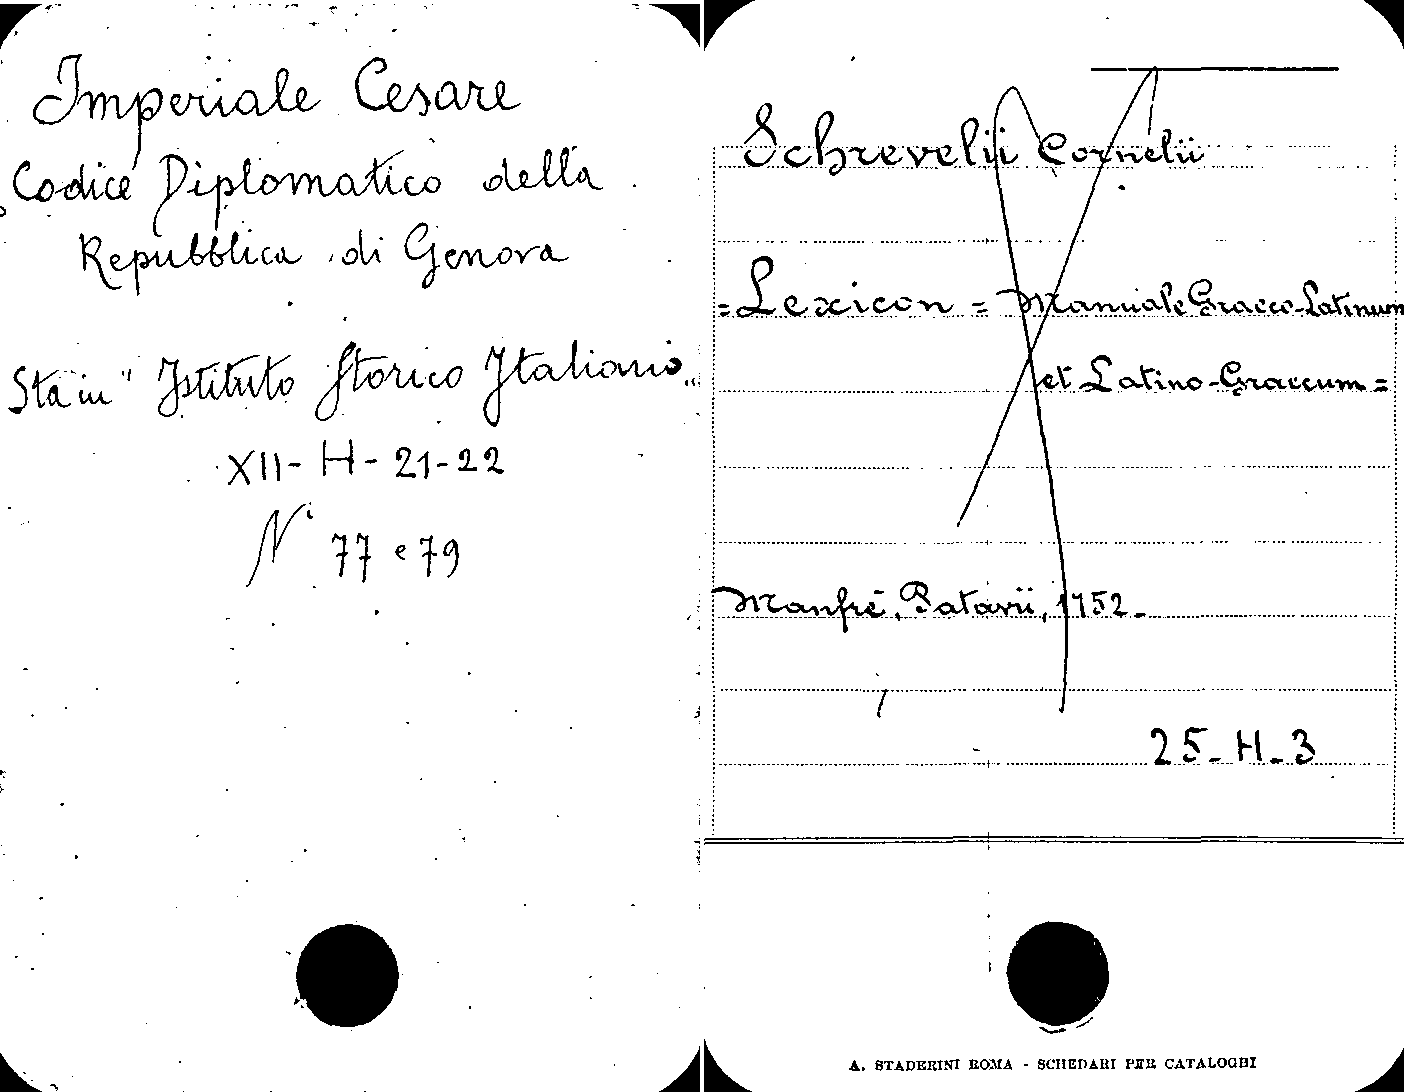 Imperiale Cesare
Codice Diplomatico della
Repubblica di Genova
Sta in "Istituto Storico Italiano„
XII-H-21-22
N. 77 e 79
Schrevelii Cornelii
=Lexicon = Manuale Graeco-Latinum
et Latino-Graecum=
Manfrè, Patavii, 1752_
25_H_3
A. STADERINI ROMA - SCHEDARI PER CATALOGHI